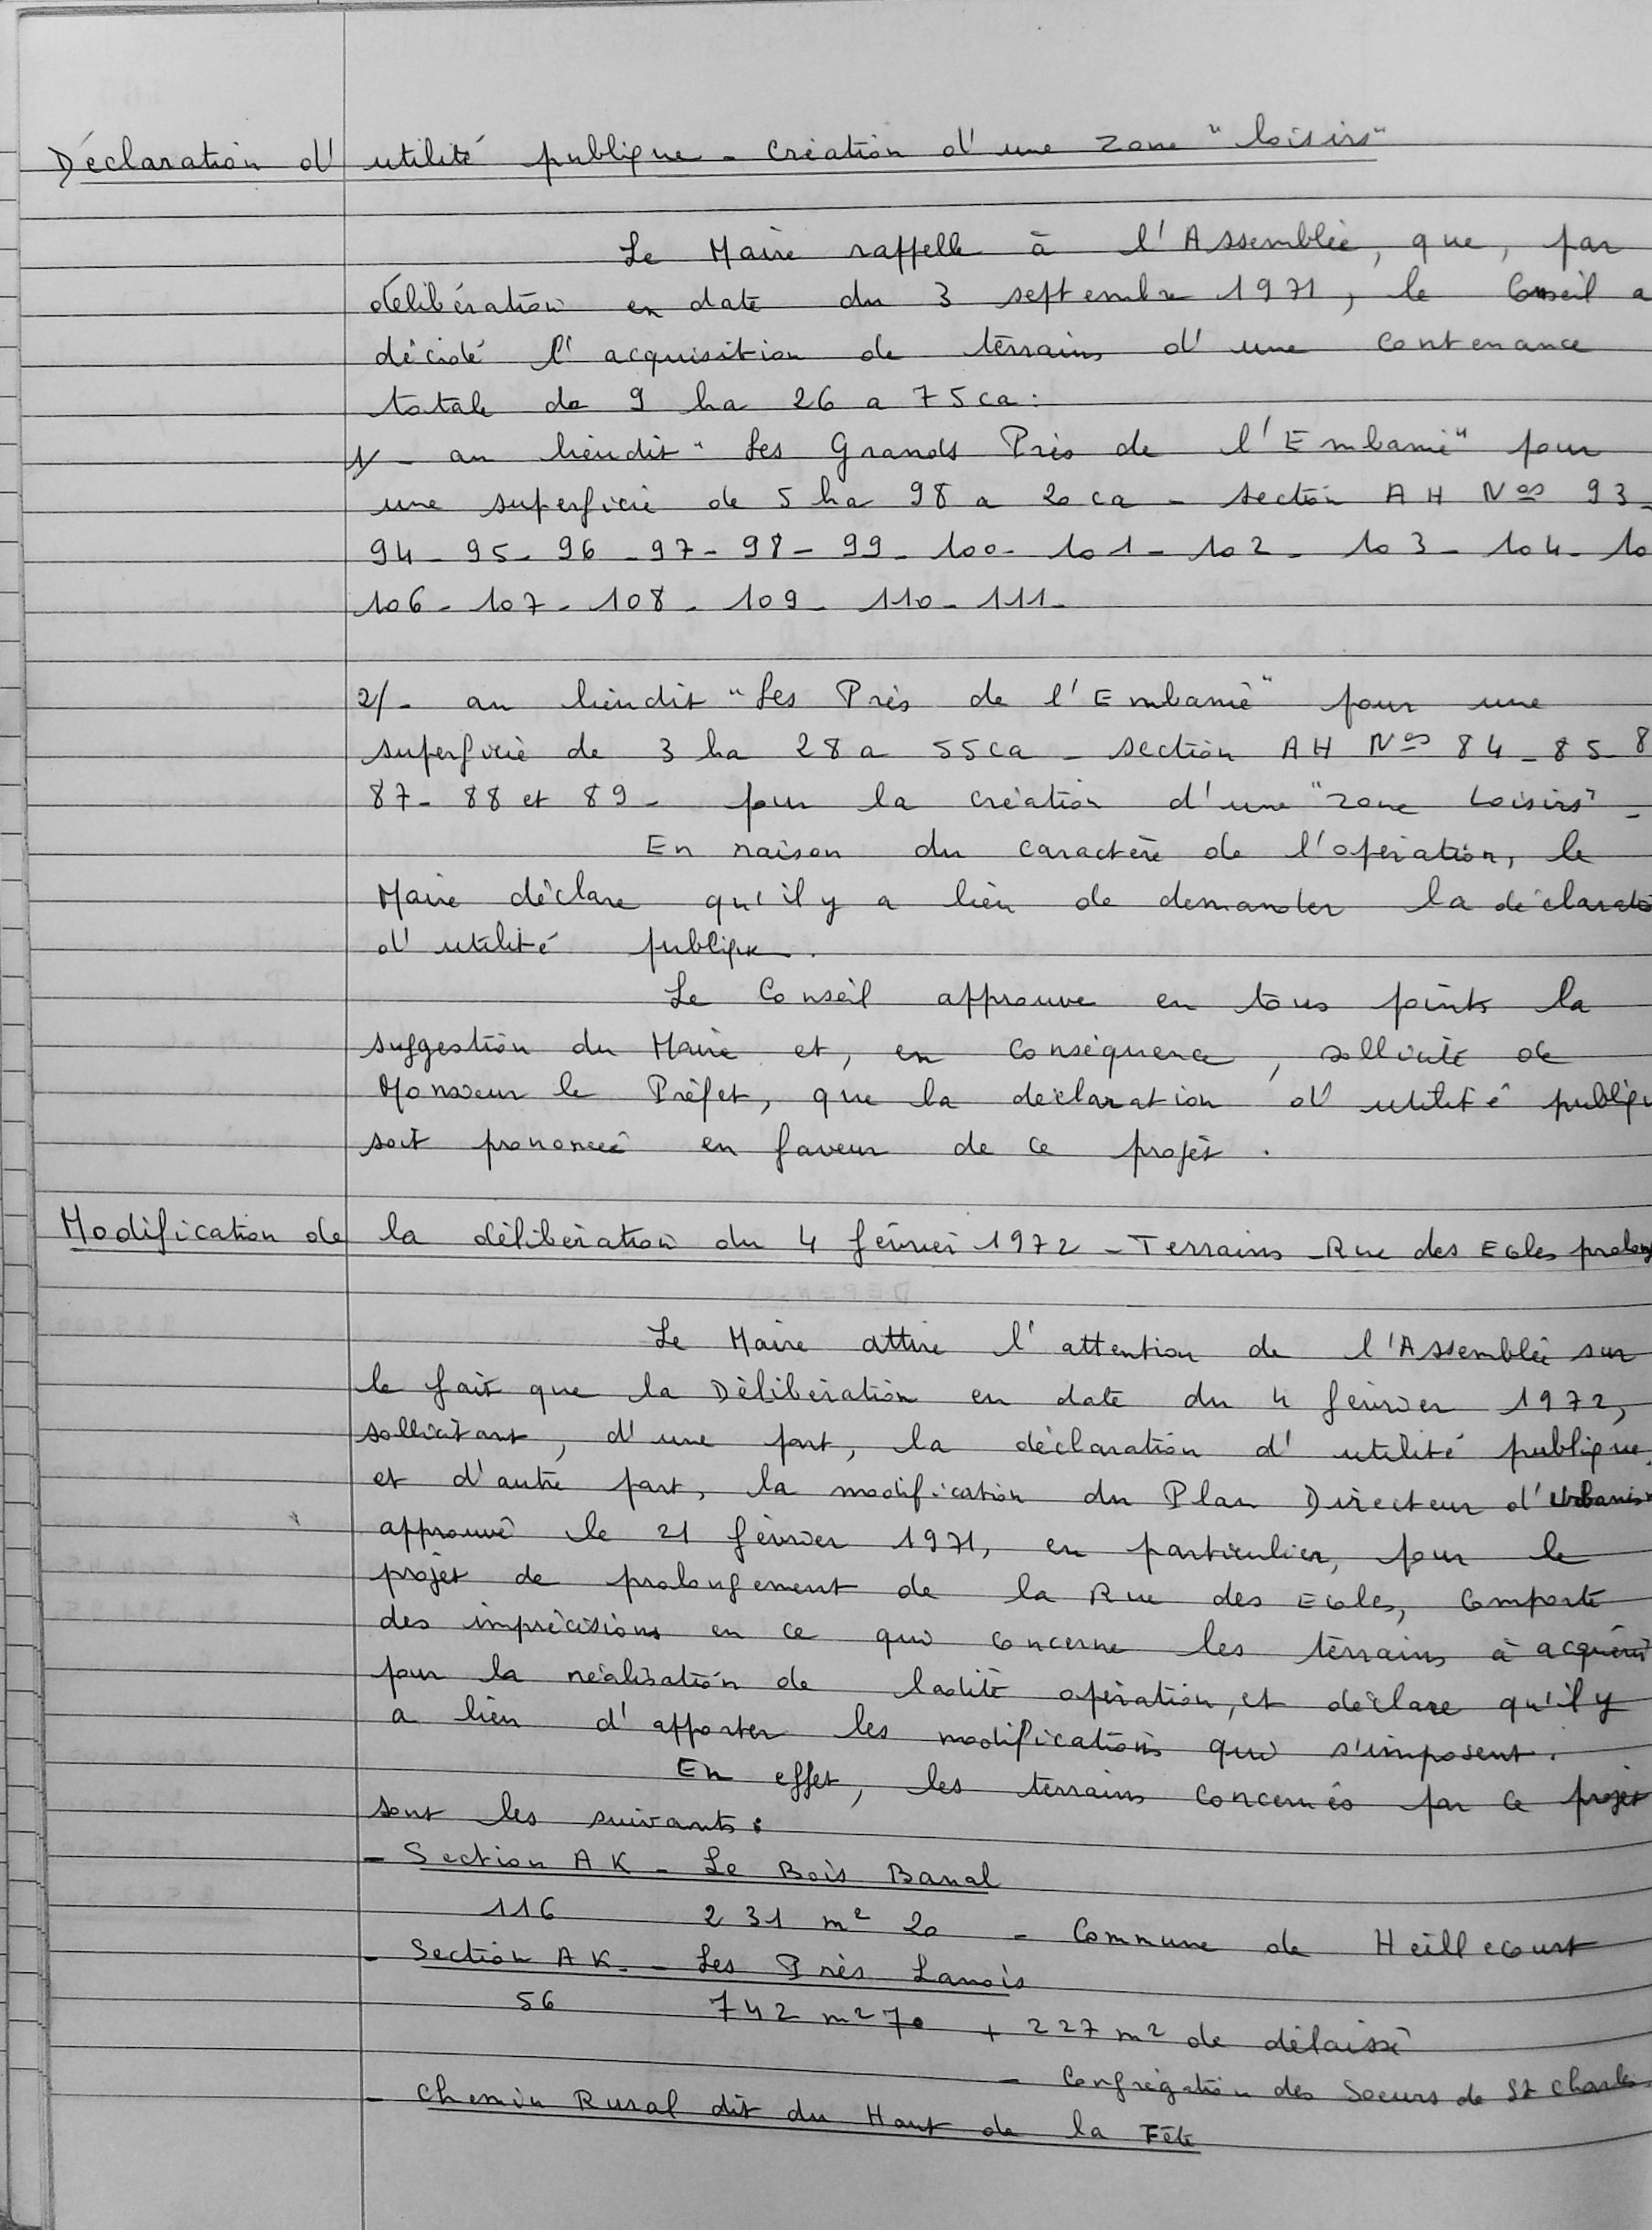 Déclaration d'utilité publique - Création d'une zone "loisirs"
Le Maire rappelle à l'Assemblée, que, par
délibération en date du 3 septembre 1971, le Conseil a
décidé l'acquisition de terrains d'une contenance
totale de 9 ha 26 a 75 ca :
1/ - au lieudit "Les Grands Prés de l'Embanie" pour
une superficie de 5 ha 98 a 20 ca - section AH Nos 93 -
94 - 95 - 96 - 97 - 98 - 99 - 100 - 101 - 102 - 103 - 104 - 10
106 - 107 - 108 - 109 - 110 - 111 -
2/ - au lieudit "Les Prés de l'Embanie" pour une
superficie de 3 ha 28 a 55 ca - section AH Nos 84 - 85 - 8
87 - 88 et 89 - pour la création d'une "zone Loisirs" -
En raison du caractère de l'opération, le
Maire déclare qu'il y a lieu de demander la déclaratio
d'utilité publique.
Le Conseil approuve en tous points la
suggestion du Maire et, en conséquence, sollicite de
Monsieur le Préfet, que la déclaration d'utilité publiqu
soit prononcée en faveur de ce projet.
Modification de la délibération du 4 février 1972 - Terrains - Rue des Ecoles prolong
Le Maire attire l'attention de l'Assemblée sur
le fait que la Délibération en date du 4 février 1972,
sollicitant, d'une part, la déclaration d'utilité publique
et d'autre part, la modification du Plan Directeur d'Urbanism
approuvé le 21 février 1971, en particulier, pour le
projet de prolongement de la Rue des Ecoles, comporte
des imprécisions en ce qui concerne les terrains à acquérir
pour la réalisation de ladite opération, et déclare qu'il y
a lieu d'apporter les modifications qui s'imposent.
En effet, les terrains concernés par ce projet
sont les suivants :
- Section AK - Le Bois Banal
116 231 m² 20 - Commune de Heillecourt
- Section AK. - Les Prés Lanois
56 742 m² 70 + 227 m² de délaissé
- Congrégation des Soeurs de St Charles
- Chemin Rural dit du Haut de la Fête